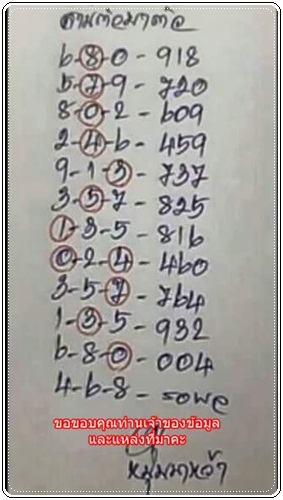 สามตัวมาต่อ
6-8-0-918
5-7-9-720
8-0-2-609
2-4-6-459
9-1-3-737
3-5-7-825
1-3-5-816
0-2-4-460
3-5-7-764
1-3-5-932
6-8-0-004
4-6-8-รอผล
ขอขอบคุณท่านเจ้าของข้อมูล
และแหล่งที่มาคะ
หนุ่มนาหว้า